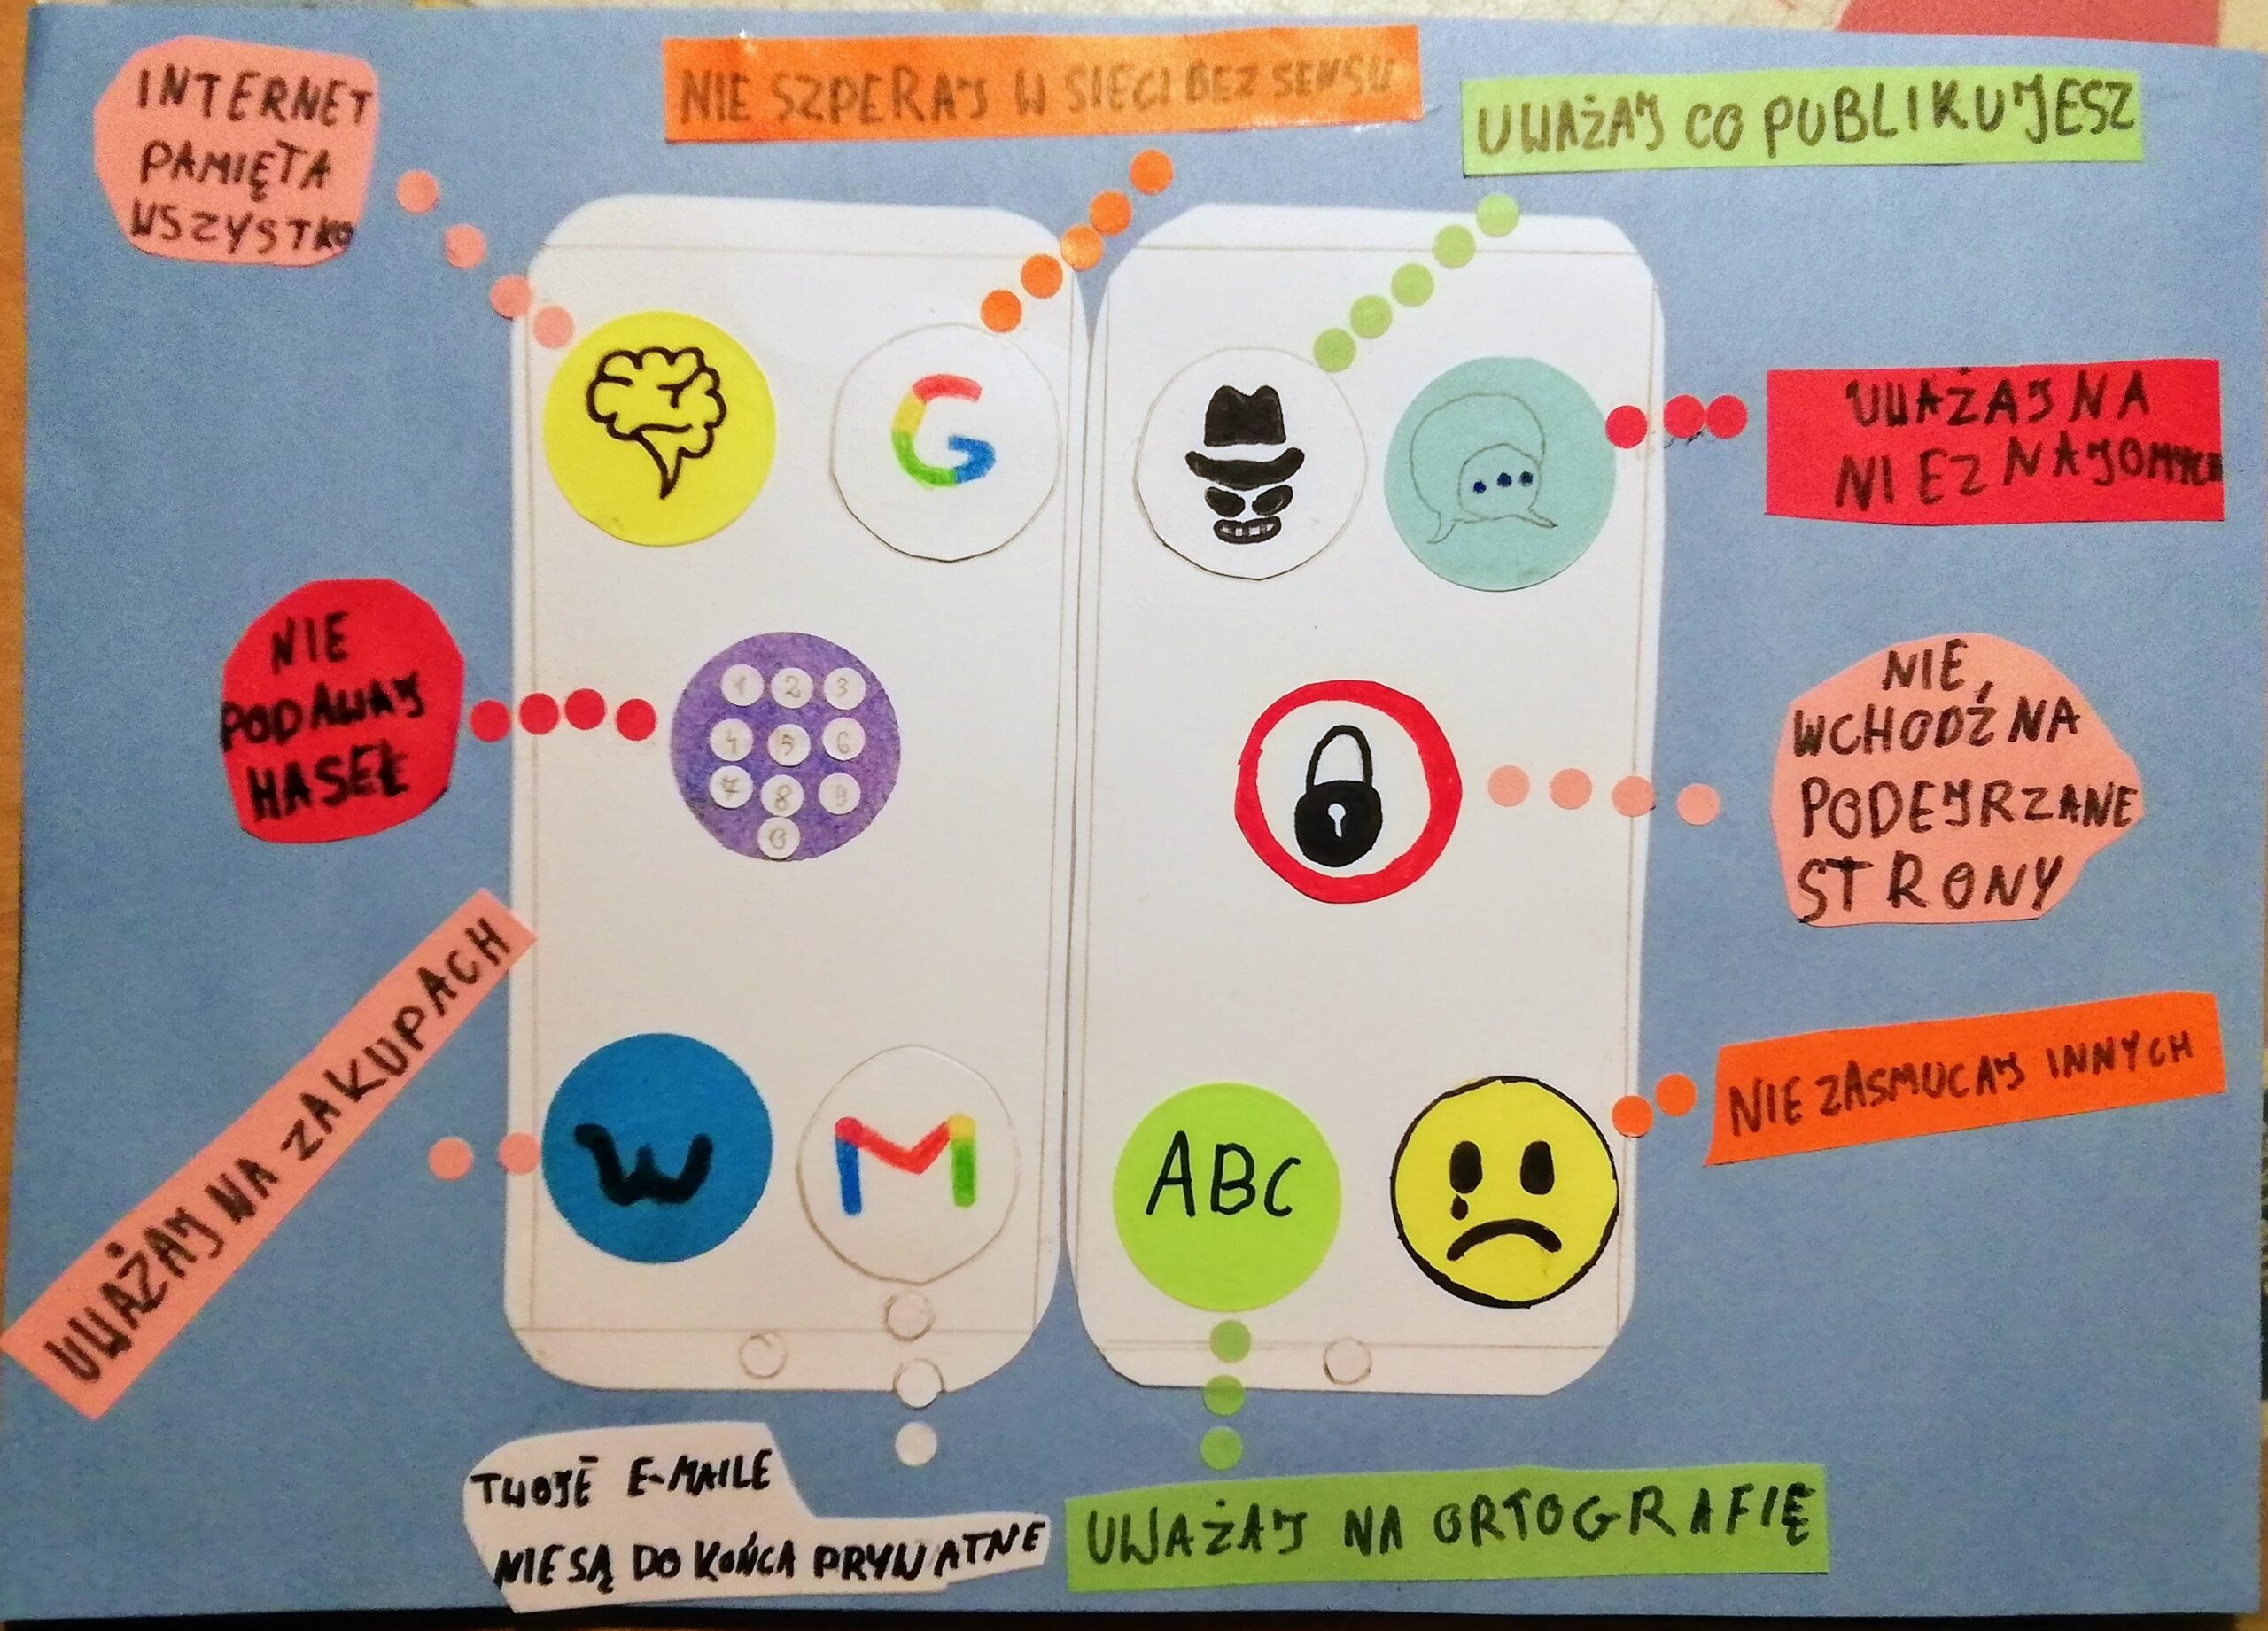 INTERNET
PAMIĘTA
WSZYSTKO
NIE SZPERAJ W SIECI BEZ SENSU
UWAŻAJ CO PUBLIKUJESZ
G
UWAŻAJ NA
NIEZNAJOMYCH
NIE
PODAWAJ
HASEŁ
1 2 3
4 5 6
7 8 9
0
NIE
WCHODŹ NA
PODEJRZANE
STRONY
UWAŻAJ NA ZAKUPACH
W
M
ABC
NIE ZASMUCAJ INNYCH
TWOJE E-MAILE
NIE SĄ DO KOŃCA PRYWATNE
UWAŻAJ NA ORTOGRAFIĘ